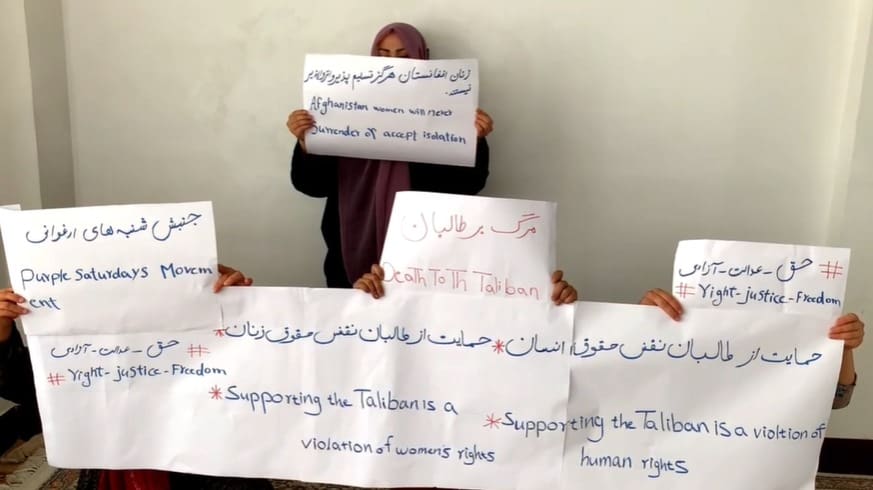 زنان افغانستان هرگز تسلیم پذیر و انزواپذیر
نیستند.
Afghanistan women will never
Surrender of accept isolation
جنبش شنبه های ارغوانی
Purple Saturdays Movem
ent
مرگ بر طالبان
Death To Th Taliban
# حق - عدالت - آزادی
# right-justice-Freedom
# حق - عدالت - آزادی
# right-justice-Freedom
* حمایت از طالبان نقض حقوق زنان
* Supporting the Taliban is a
violation of women's rights
* حمایت از طالبان نقض حقوق انسان
* Supporting the Taliban is a violtion of
human rights